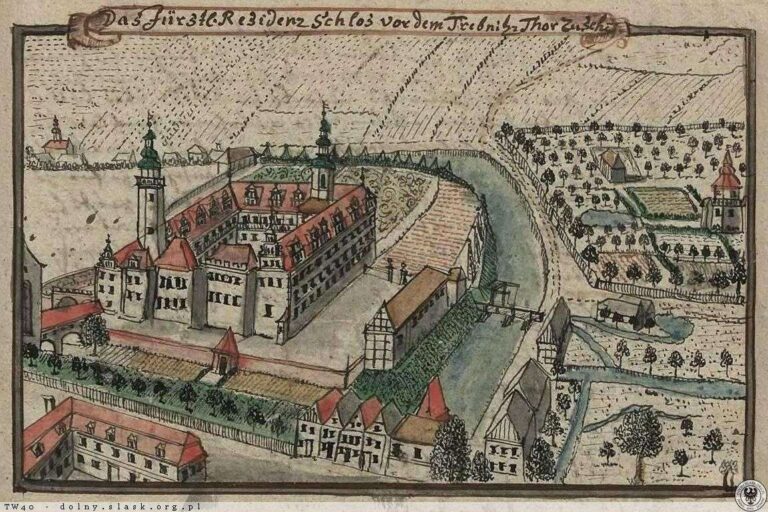 Das Fürstl. Residenz Schlos vor dem Trebnitz Thor zusch
TW40 - dolny.slask.org.pl